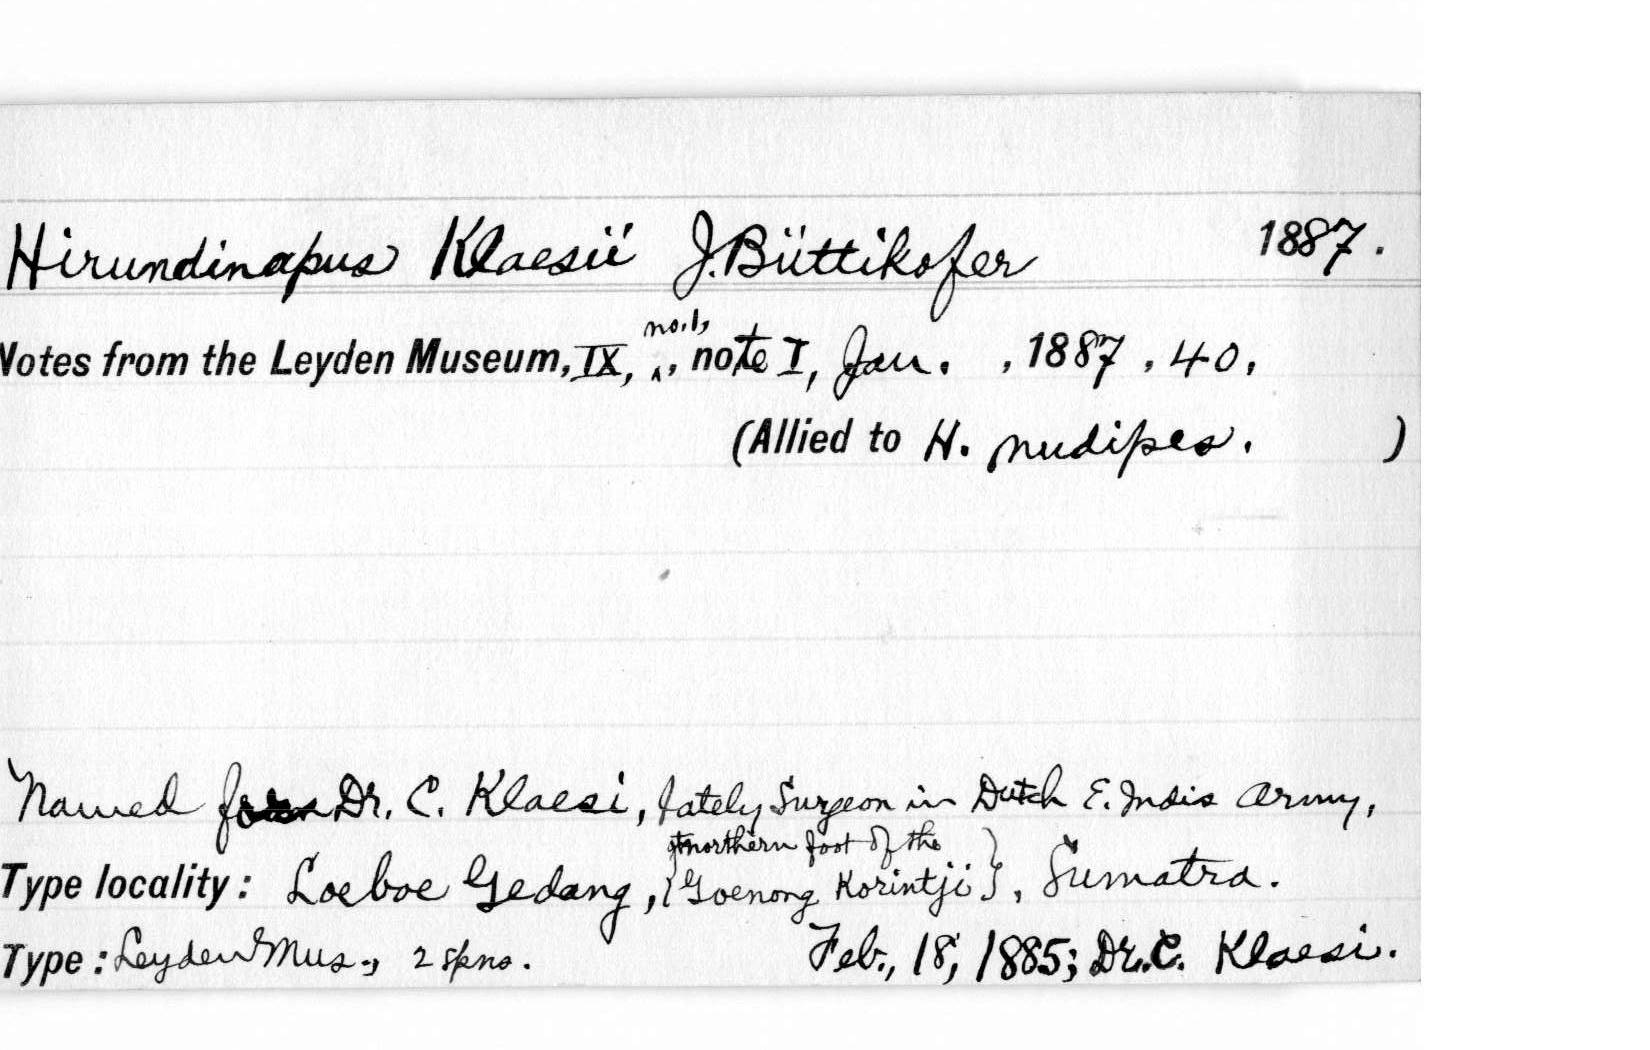 Hirundinapus Klaesii J. Büttikofer 1887.
Notes from the Leyden Museum, IX, no. 1, , note I, Jan. , 1887 , 40,
(Allied to H. nudipes. )
Named for Dr. C. Klaesi, lately Surgeon in Dutch E. Indis Army,
Type locality: Loeboe Gedang, { at northern foot of the Goenong Korintji }, Sumatra.
Type: Leyden Mus., 2 spns. Feb., 18, 1885; Dr. C. Klaesi.